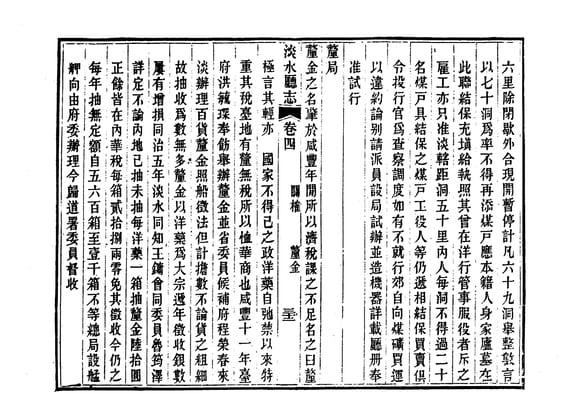 六里除閉歇外合現開暫停計凡六十九洞舉整數言
以七十洞爲率不得再添煤戶應本籍人身家廬墓在
此聯結保充塡給執照其曾在洋行管事服役者斥之
雇工亦只准淡轄距洞五十里內人每洞不得過二十
名煤戶具結保之煤戶工役人等仍遞相結保買賣俱
令投行官爲查察調度如有不就行郊自向煤礦買運
以違約論別請派員設局試辦並造機器詳載廳册奉
准試行
釐局
釐金之名肇於咸豐年閒所以濟稅課之不足名之曰釐
淡水廳志 卷四 關榷 釐金
極言其輕亦 國家不得已之政洋藥自弛禁以來特
重其稅臺地有釐無稅所以恤華商也咸豐十一年臺
府洪毓琛奉飭舉辦釐金並省委員候補府程榮春來
淡辦理百貨釐金照船徵法但計擔數不論貨之粗細
故抽收爲數無多釐金以洋藥爲大宗遞年徵收銀數
屢有增損同治五年淡水同知王鏞會同委員魯筠澤
詳定不論內地已抽未抽每洋藥一箱抽釐金陸拾圓
正餘皆在內華稅每箱貳拾捌兩零免其徵收今仍之
每年抽無定額自五六百箱至壹千箱不等總局設艋
舺向由府委辦理今歸道署委員督收